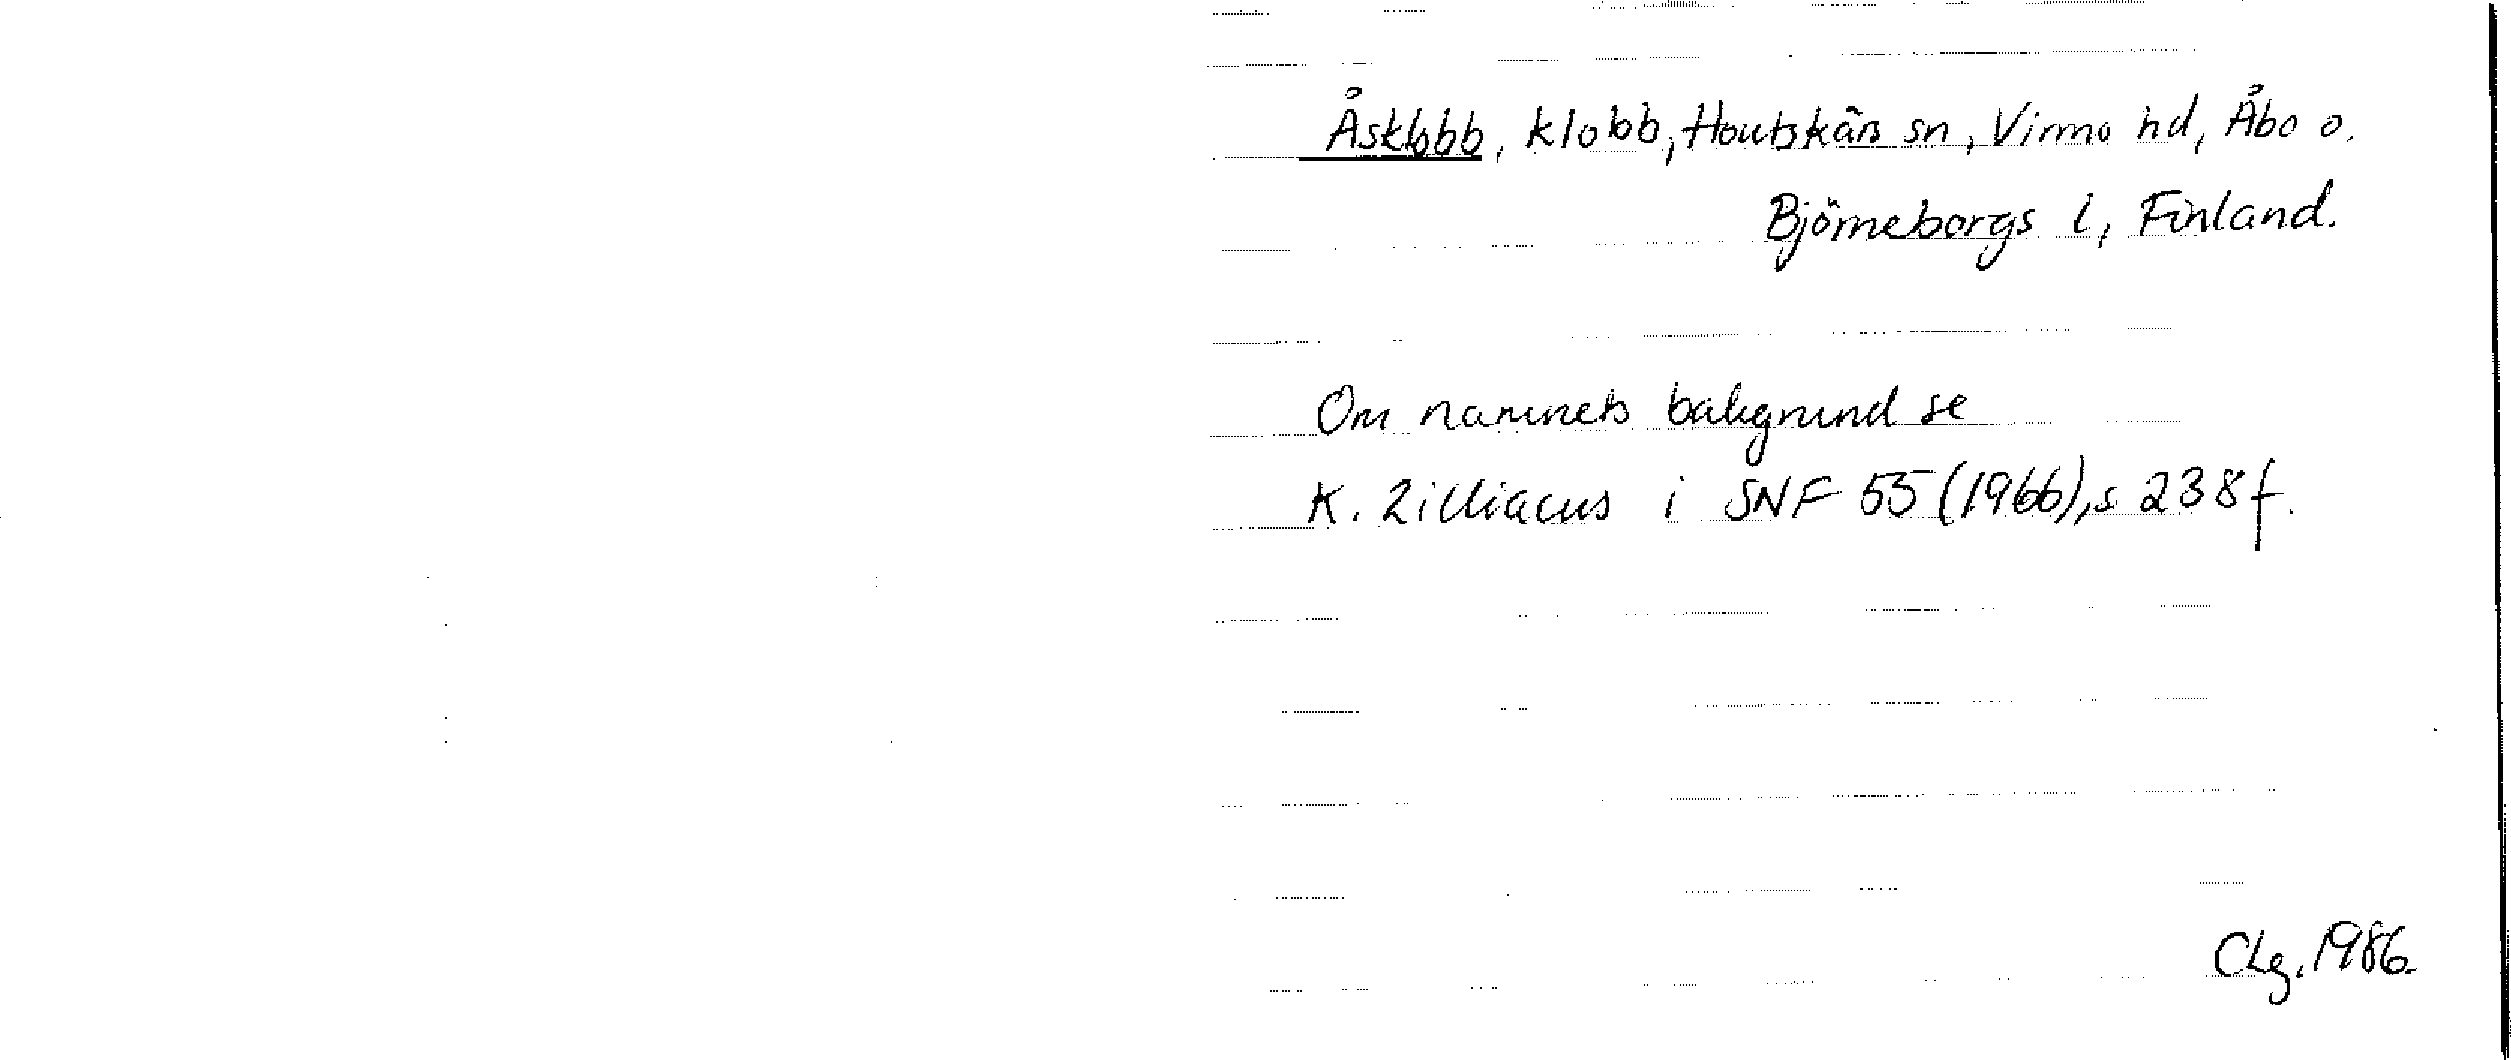 Åsklobb, klobb, Houtskärs sn, Virmo hd, Åbo o.
Björneborgs l, Finland.
Om namnets bakgrund se
K. Zilliacus i SNF 55 (1966), s 238 f.
CLg. 1986